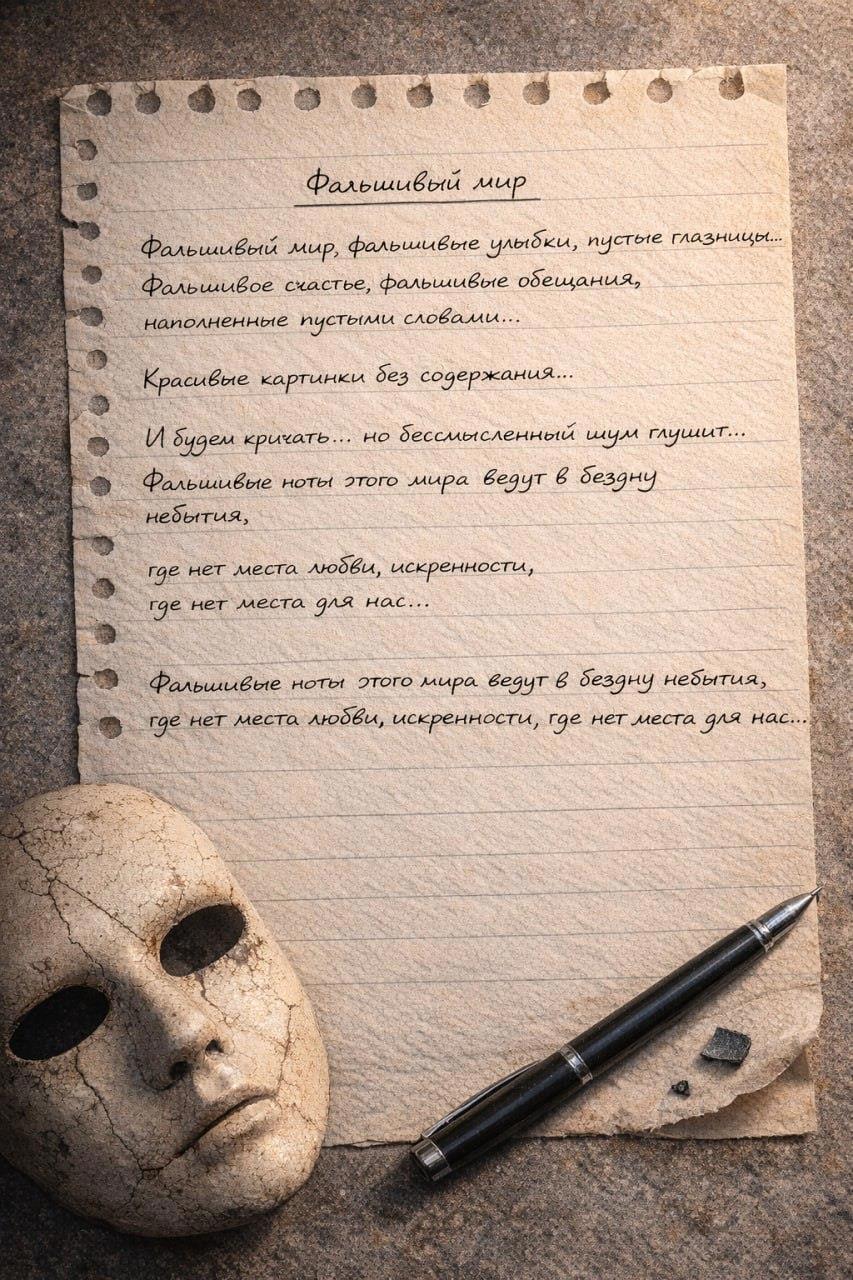 Фальшивый мир
Фальшивый мир, фальшивые улыбки, пустые глазницы...
Фальшивое счастье, фальшивые обещания,
наполненные пустыми словами...
Красивые картинки без содержания...
И будем кричать... но бессмысленный шум глушит...
Фальшивые ноты этого мира ведут в бездну
небытия,
где нет места любви, искренности,
где нет места для нас...
Фальшивые ноты этого мира ведут в бездну небытия,
где нет места любви, искренности, где нет места для нас...